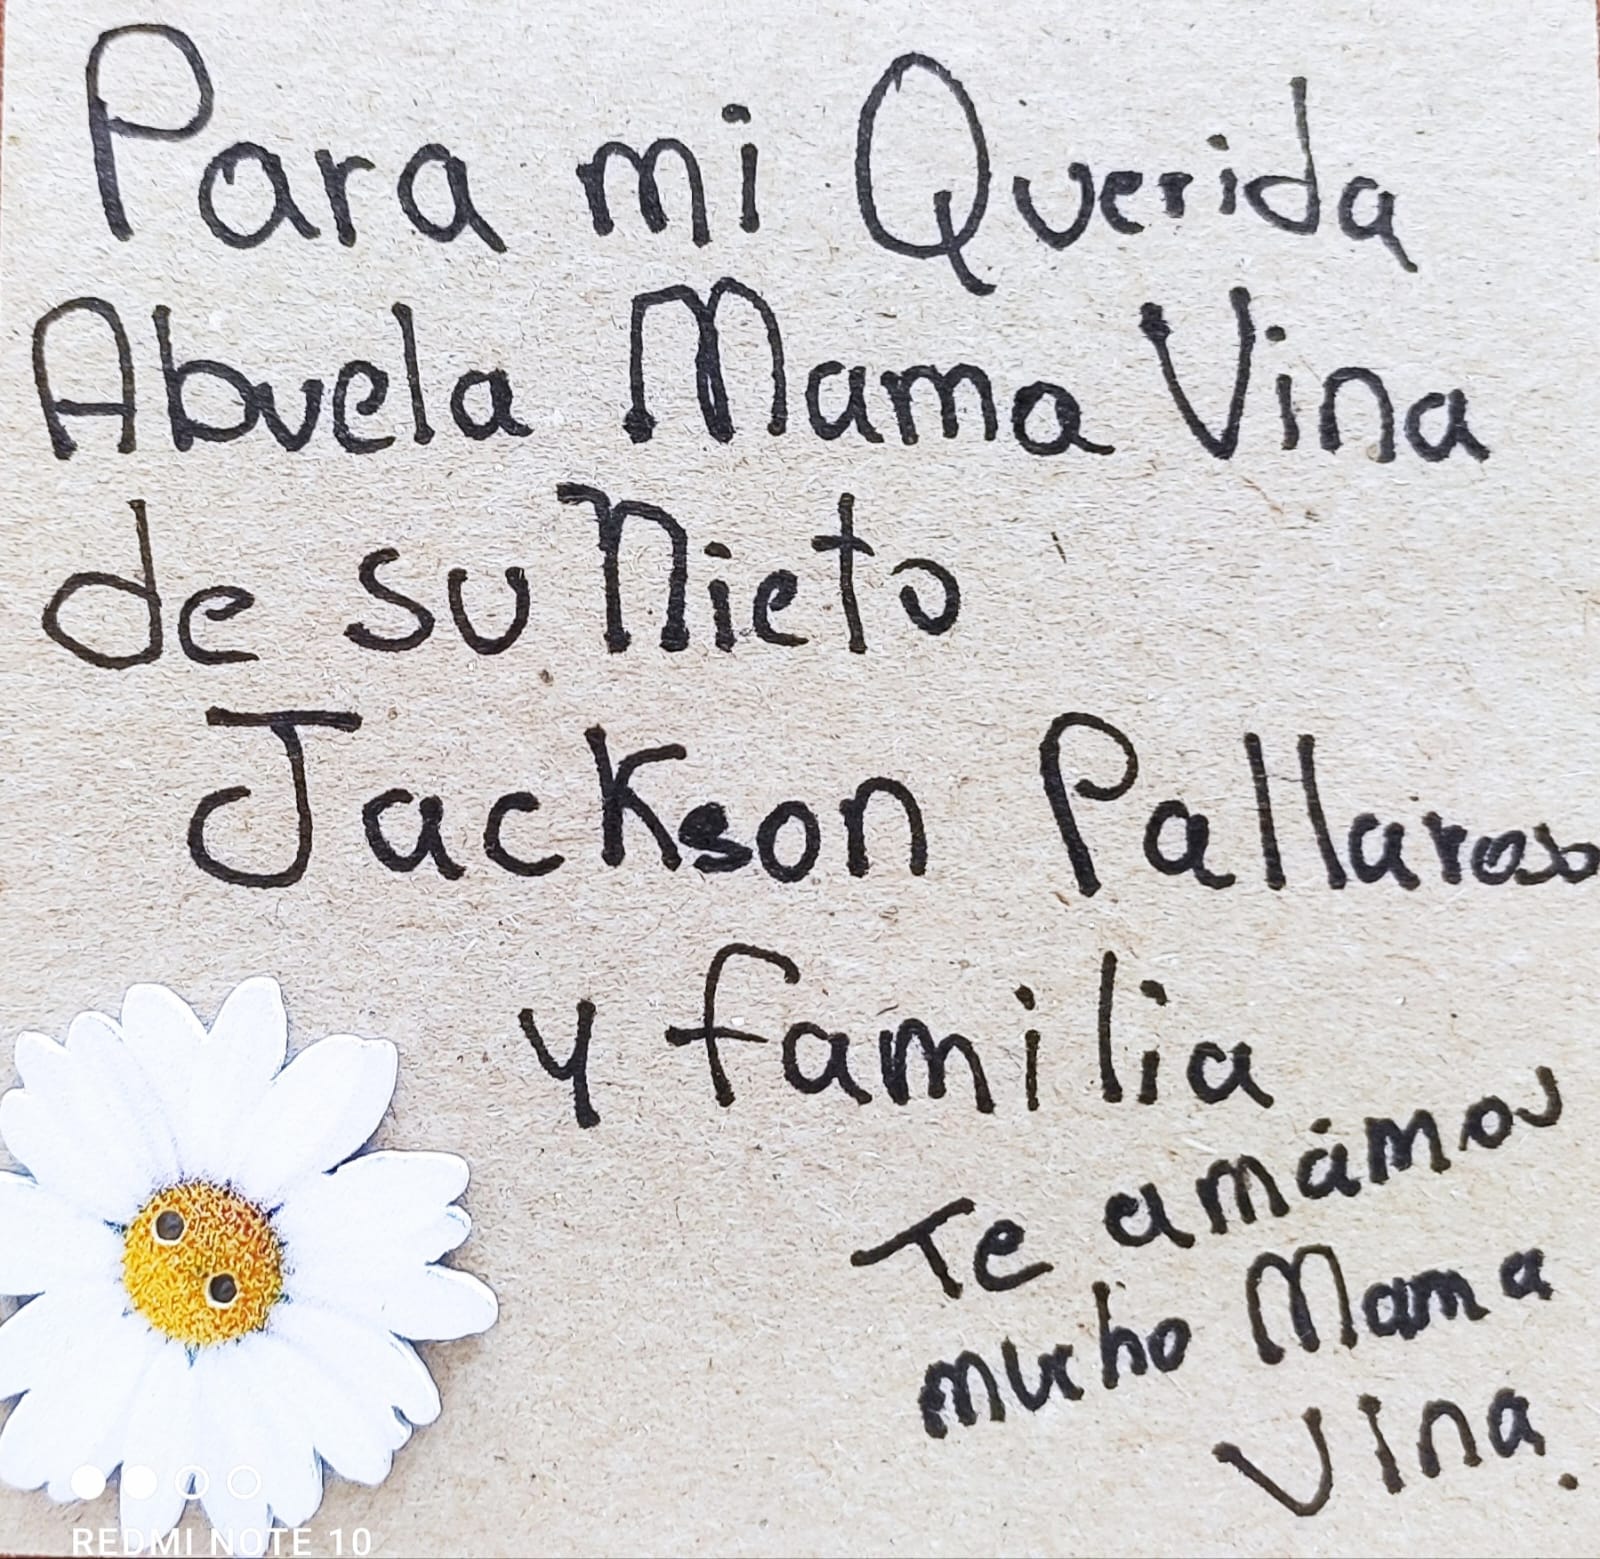 Para mi Querida
Abuela Mama Vina
de su Nieto
Jackson Pallaroso
y familia
Te amámos
mucho Mama
Vina.
REDMI NOTE 10